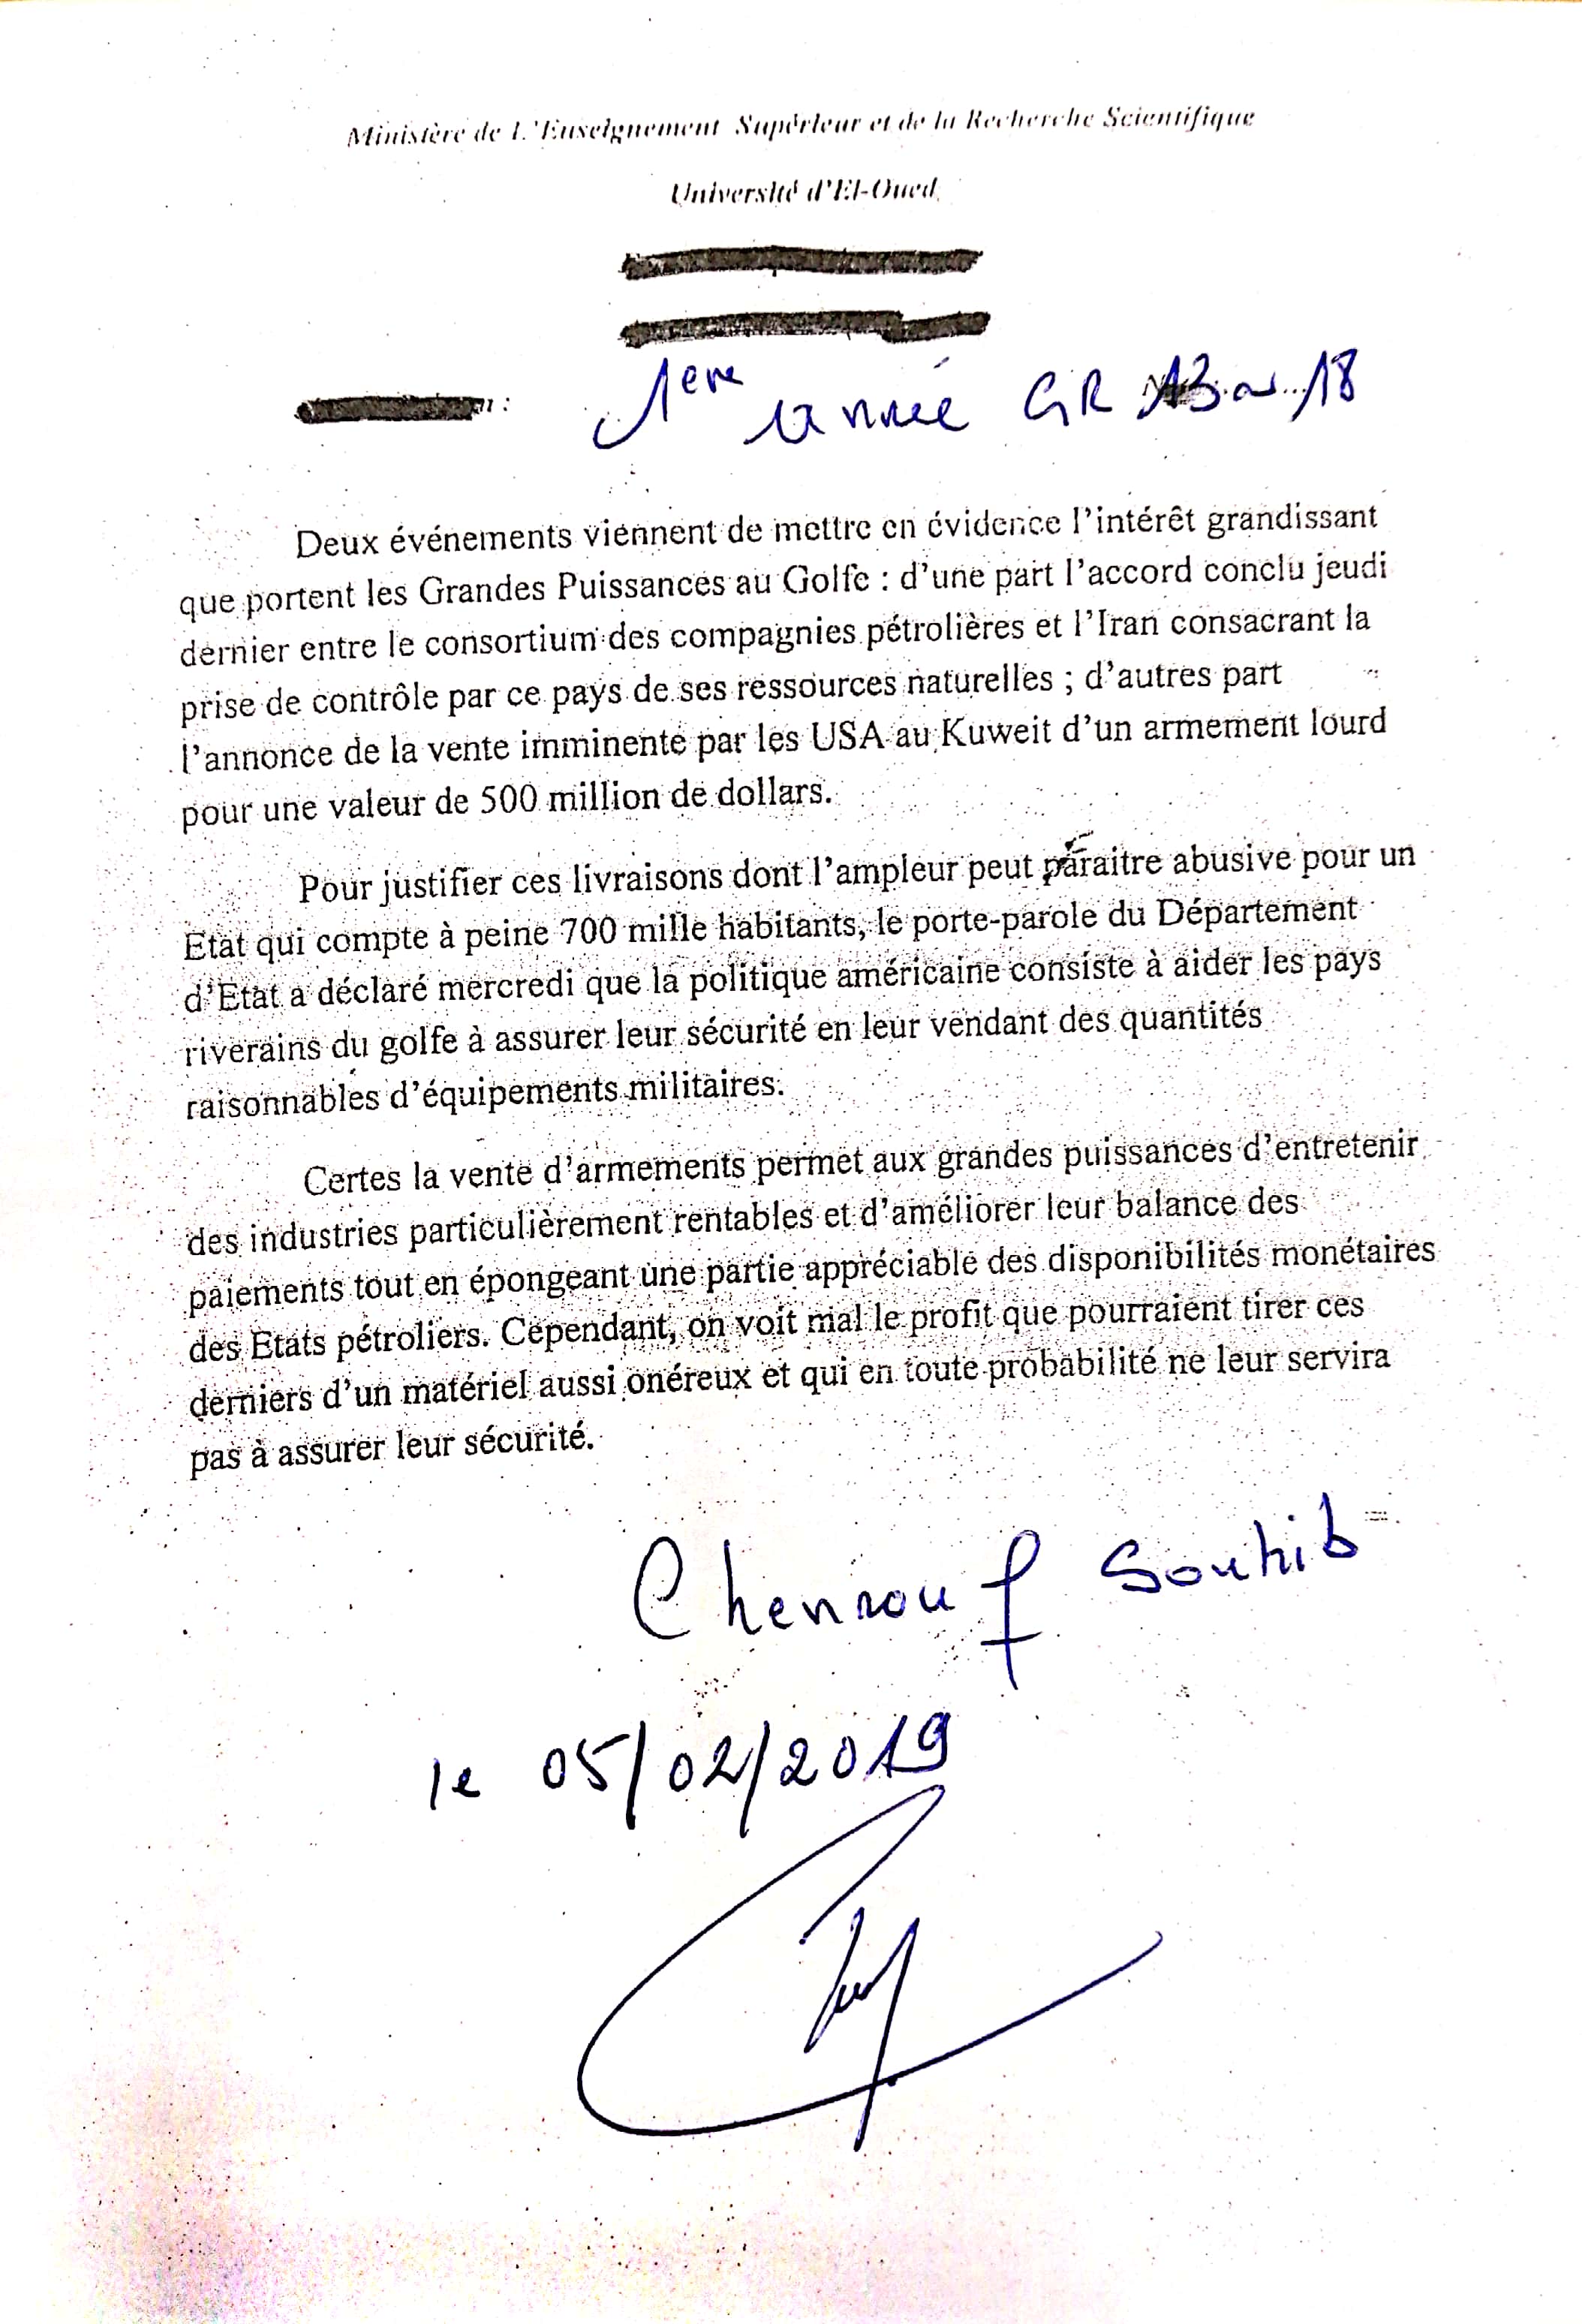 Ministère de L'Enseignement Supérieur et de la Recherche Scientifique
Université d'El-Oued
1ere année GR 13 au 18
Deux événements viennent de mettre en évidence l'intérêt grandissant
que portent les Grandes Puissances au Golfe : d'une part l'accord conclu jeudi
dernier entre le consortium des compagnies pétrolières et l'Iran consacrant la
prise de contrôle par ce pays de ses ressources naturelles ; d'autres part
l'annonce de la vente imminente par les USA au Kuweit d'un armement lourd
pour une valeur de 500 million de dollars.
Pour justifier ces livraisons dont l'ampleur peut paraitre abusive pour un
Etat qui compte à peine 700 mille habitants, le porte-parole du Département
d'Etat a déclaré mercredi que la politique américaine consiste à aider les pays
riverains du golfe à assurer leur sécurité en leur vendant des quantités
raisonnables d'équipements militaires.
Certes la vente d'armements permet aux grandes puissances d'entretenir
des industries particulièrement rentables et d'améliorer leur balance des
paiements tout en épongeant une partie appréciable des disponibilités monétaires
des Etats pétroliers. Cependant, on voit mal le profit que pourraient tirer ces
derniers d'un matériel aussi onéreux et qui en toute probabilité ne leur servira
pas à assurer leur sécurité.
Chenrouf Souhib
le 05/02/2019